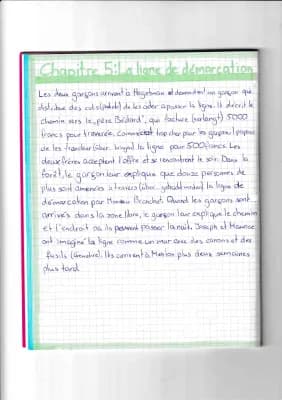 Chapitre 5: La ligne de démarcation
Les deux garçons arrivent à Hagetmau et demandent un garçon qui
distribue des colis (paket) de les aider a passer la ligne. Il décrit le
chemin vers le „père Bédard", qui facture (verlangt) 5000
francs pour traversée. Comme c'est trop cher pour les garçons, il propose
de les transférer (über bringen) la ligne pour 500 francs. Les
deux frères acceptent l'offre et se rencontrent le soir. Dans la
forêt, le garçon leur explique que douze personnes de
plus sont amenées à travers (über. gebracht werden) la ligne de
démarcation par Monsieur Branchet. Quand les garçons sont
arrivés dans la zone libre, le garçon leur explique le chemin
et l'endroit où ils peuvent passer la nuit. Joseph et Maurice
ont imaginé la ligne comme un mur avec des canons et des
fusils (Gewehre). Ils arrivent à Menton plus deux semaines
plus tard.